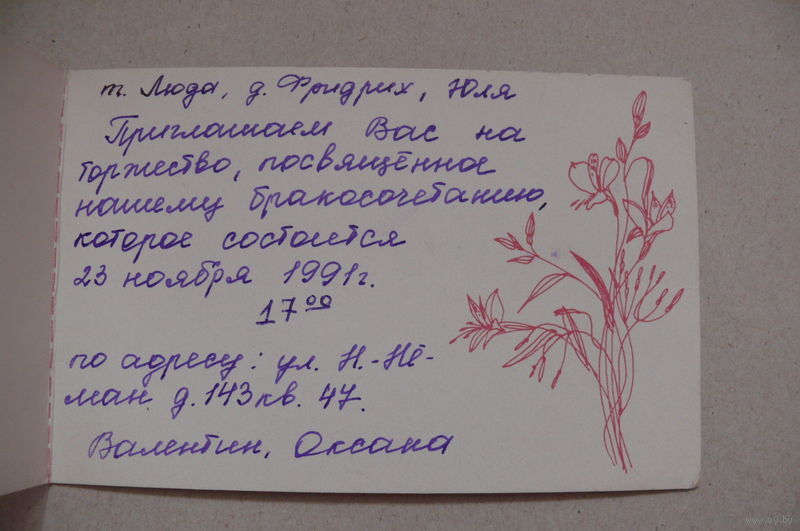 т. Люда, д. Фридрих, Юля
Приглашаем Вас на
торжество, посвящённое
нашему бракосочетанию,
которое состоится
23 ноября 1991г.
17 00
по адресу: ул. Н.-Нё-
ман д. 143 кв. 47.
Валентин, Оксана
www.ay.by